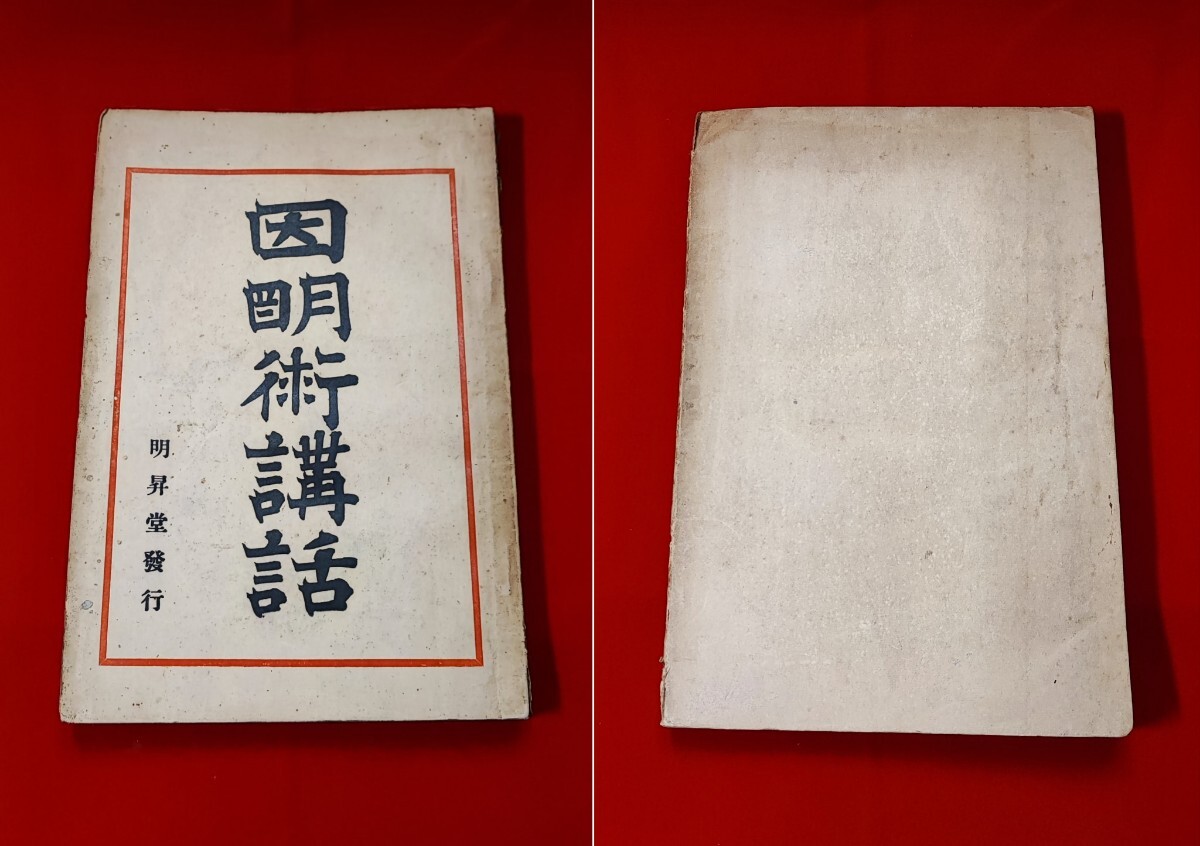 因明術講話
明昇堂發行